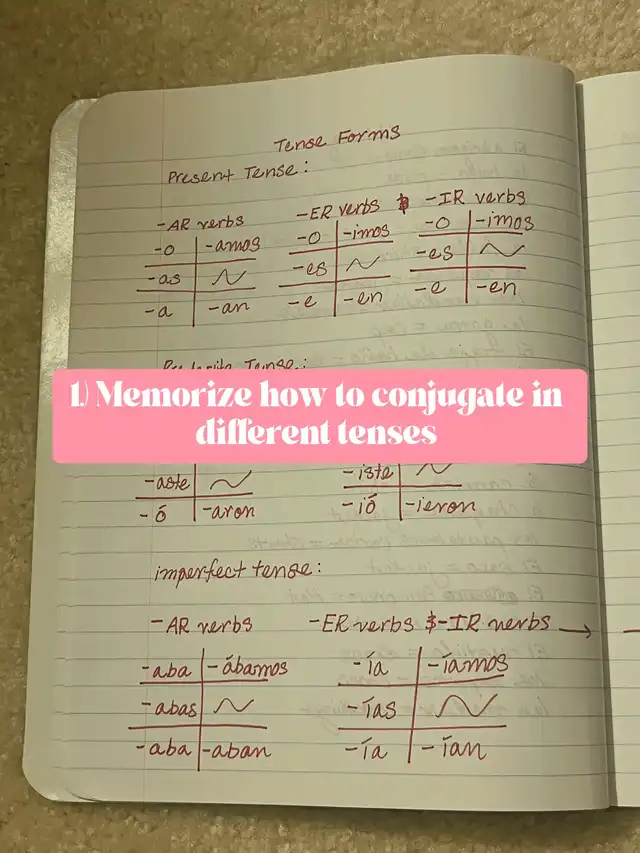 Tense Forms
Present Tense:
-AR verbs -ER verbs & -IR verbs
-o -amos -o -imos -o -imos
-as -es -es
-a -an -e -en -e -en
Preterite Tense:
1.) Memorize how to conjugate in
different tenses
-aste -iste
-ó -aron -ió -ieron
imperfect tense:
-AR verbs -ER verbs &-IR verbs →
-aba -ábamos -ía -íamos
-abas -ías
-aba -aban -ía -ían